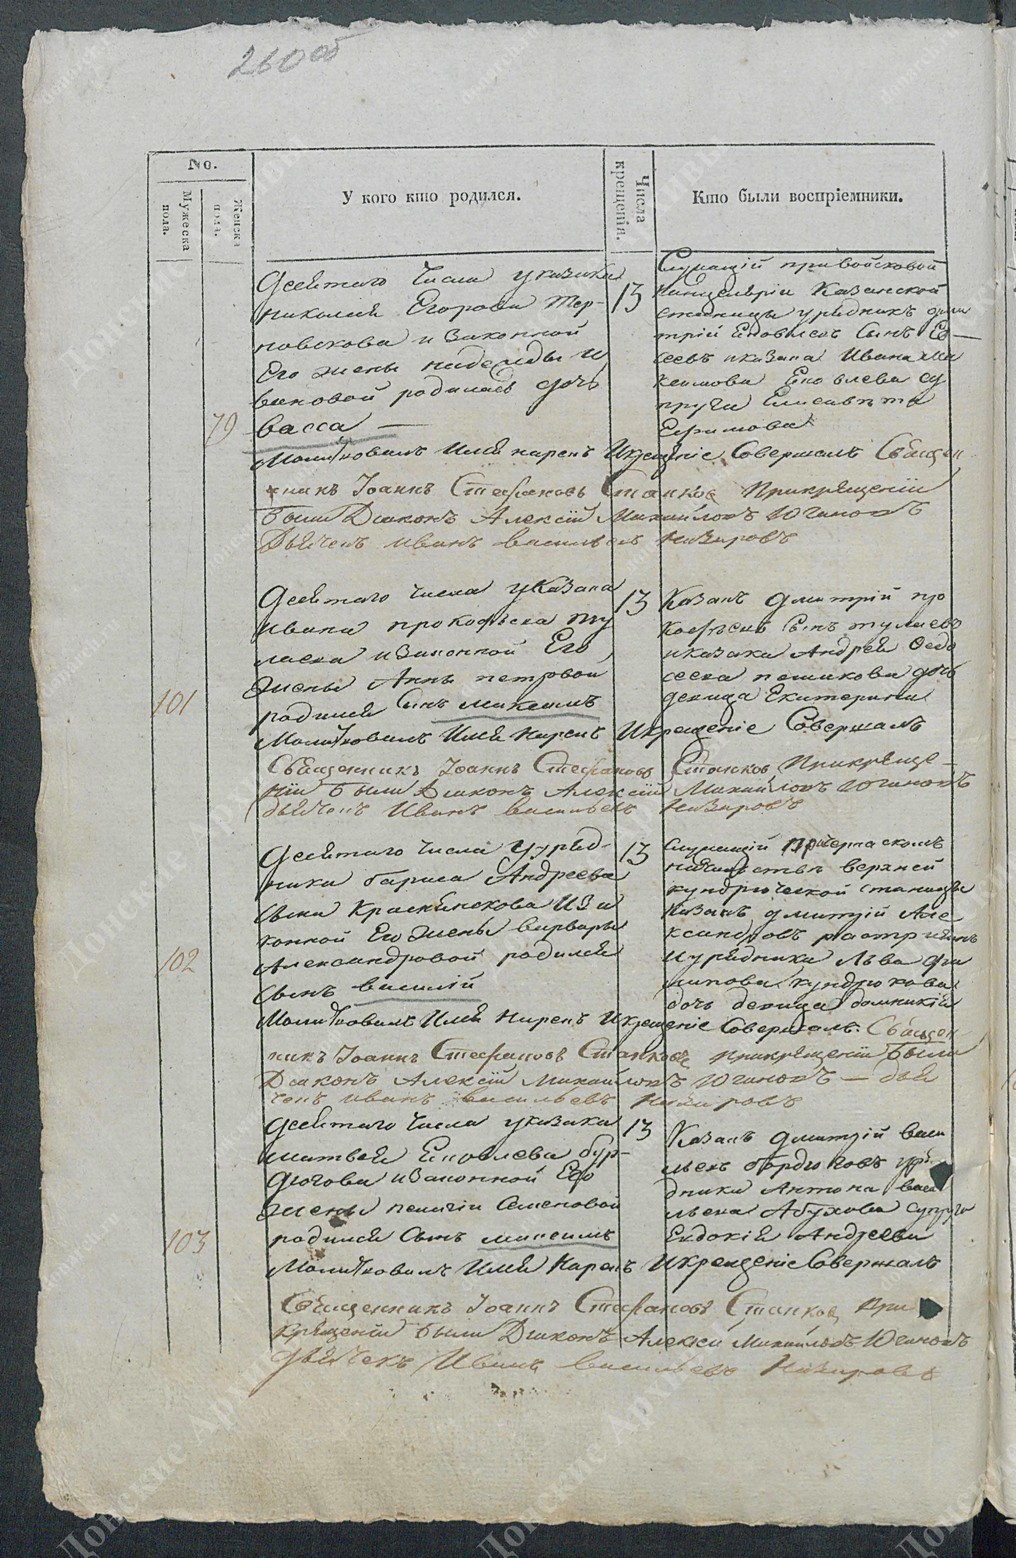 260 об
No.
Мужеска пола.
Женска пола.
У кого кто родился.
Числа крещенія.
Кто были воспріемники.
79
Десятаго числа указака
николая Егорова Тер-
новскова изаконной
Его жены надежды и
вановой родилась дочь
васса —
13
Служащій привойсковой
канцеляріи Казанской
станицы урядникъ дми
трій
сынъ Ев—
сеевъ иказака Ивана ма
ксимова Яковлева су
пруга Елисавета
Ефимова
Молитвовалъ Имя нарекъ Икрещеніе Совершалъ Священ
никъ Іоаннъ Стефановъ Станков Прикрещеніи
были Діаконъ Алексій Михайловъ Югановъ
Дьячекъ иванъ васильевъ Назаровъ
101
Десятаго числа указака
ивана прокофьева ту
лаева изаконной Его
жены Анны петровой
родился Сынъ максимъ
13
Казакъ дмитрій про
кофьевъ Сынъ тулаевъ
иказака Андрея Федо
сеева пешикова дочь
девица Екатерина
Молитвовалъ Имя нарекъ Икрещеніе Совершалъ
Священникъ Іоаннъ Стефановъ Станков Прикреще—
ніи были Діаконъ Алексій Михайловъ Югановъ
дьячекъ Иванъ васильевъ Назаровъ
102
Десятаго числа ууряд-
ника бариса Андреева
сына Краснянскова Иза
конной Его жены варвары
Александровой родился
сынъ василій
13
Служащій причеркаскомъ
начальстве верхней
кундрюческой станицы
казакъ дмитрій Але
ксандровъ растригинъ
иурядника Льва фи
липова кундрюкова
дочь девица домникія
Молитвовалъ Имя нарекъ Икрещеніе Совершалъ. Священ
никъ Іоаннъ Стефановъ Станков прикрещеніи были
Діаконъ Алексій Михайловъ Югановъ — дья
чекъ иванъ васильевъ Назаровъ
103
Десятаго числа указака
матвея Яковлева бур-
дюгова изаконной Его
жены пелагіи Семеновой
родился Сынъ максимъ
13
Казакъ дмитрій васи
льевъ бордюговъ уря
дника Антона васи
льева Абухова супруга
Евдокія Андреева
Молитвовалъ Имя Нарекъ Икрещеніе Совершалъ
Священникъ Іоаннъ Стефановъ Станков при
крещеніи были Діаконъ Алексий Михайловъ Югановъ
дьячекъ Иванъ васильевъ Назаровъ